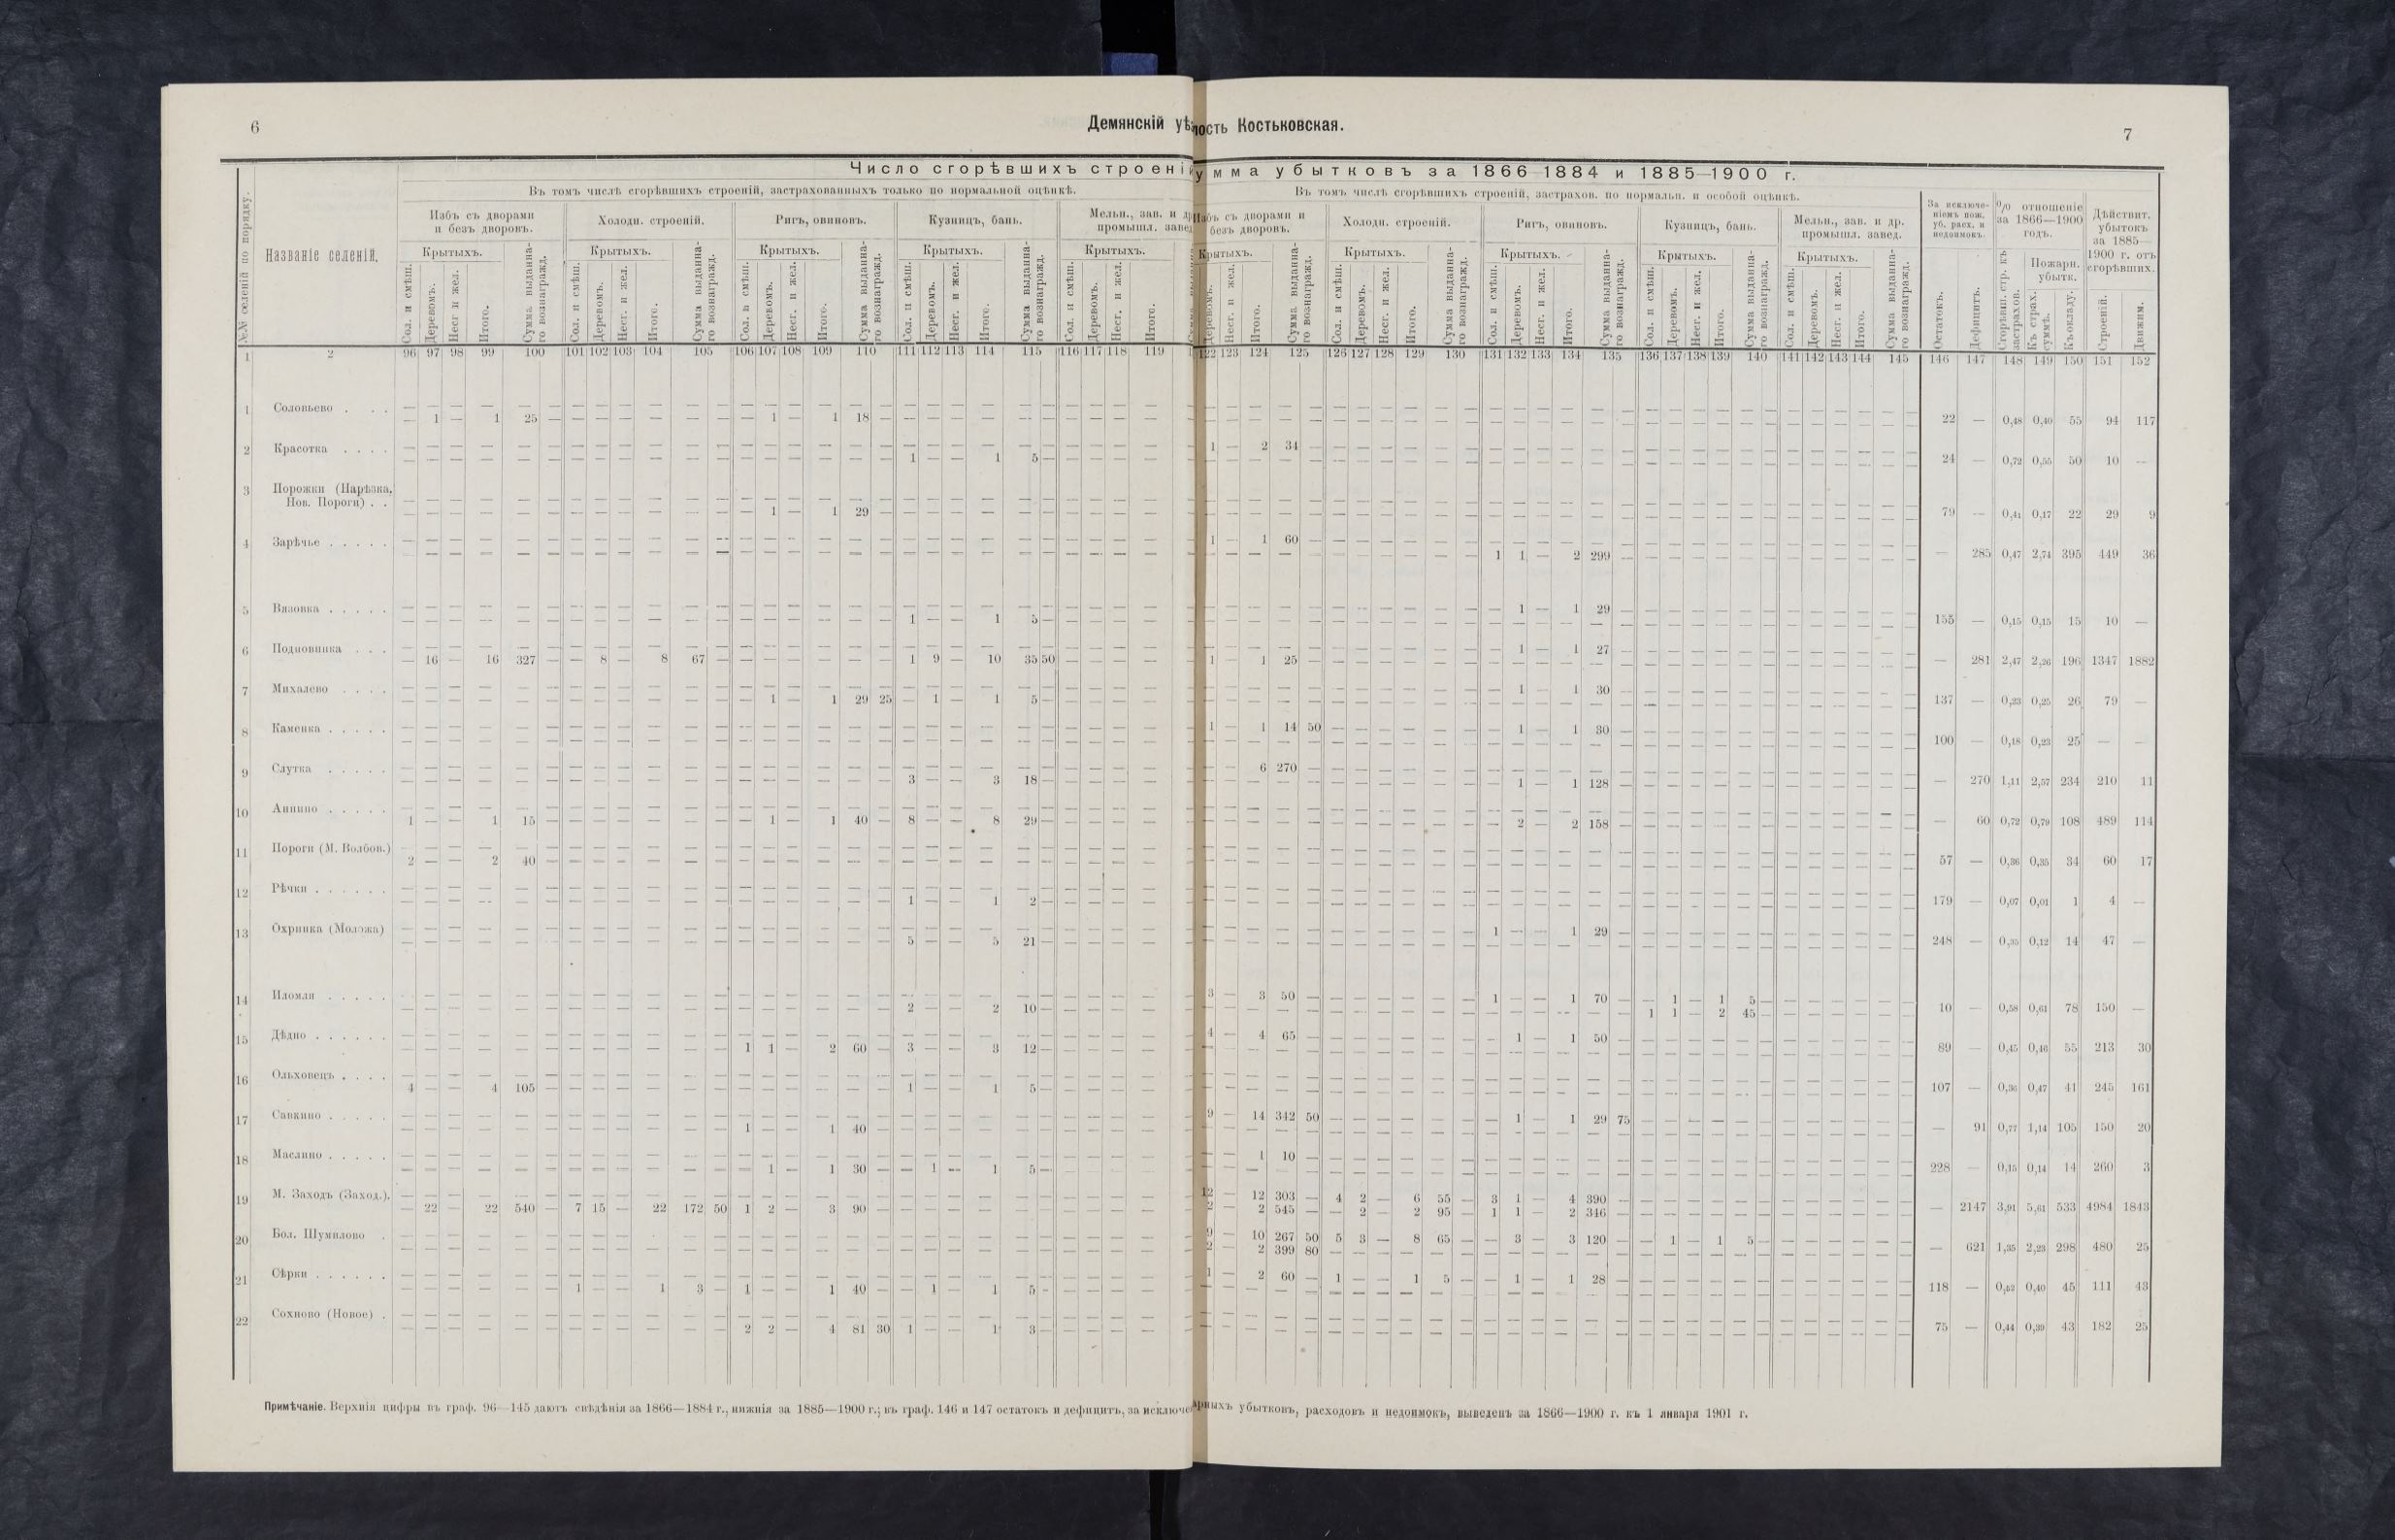 6
Демянскій уѣ
лость Костьковская.
7
Число сгорѣвшихъ строені
умма убытковъ за 1866—1884 и 1885—1900 г.
Въ томъ числѣ сгорѣвшихъ строеній, застрахованныхъ только по нормальной оцѣнкѣ.
Въ томъ числѣ сгорѣвшихъ строеній, застрахов. по нормальн. и особой оцѣнкѣ.
№№ селеній по порядку.
Названіе селеній.
Избъ съ дворами и безъ дворовъ.
Холодн. строеній.
Ригъ, овиновъ.
Кузницъ, бань.
Мельн., зав. и др
промышл. завед
Избъ съ дворами и безъ дворовъ.
Холодн. строеній.
Ригъ, овиновъ.
Кузницъ, бань.
Мельн., зав. и др. промышл. завед.
За исключеніемъ пож. уб. расх. и недоимокъ.
% отношеніе за 1866—1900 годъ.
Дѣйствит. убытокъ за 1885—1900 г. отъ сгорѣвших.
Крытыхъ. Крытыхъ. Крытыхъ. Крытыхъ. Крытыхъ. Крытыхъ. Крытыхъ. Крытыхъ. Крытыхъ. Крытыхъ. Пожарн. убытк.
Сол. и смѣш. Деревомъ. Несг. и жел. Итого. Сумма выданнаго вознагражд.
Остатокъ. Дефицитъ. Сгорѣвш. стр. къ застрахов. Къ страх. суммѣ. Къ окладу. Строеній. Движим.
1 2 96 97 98 99 100 101 102 103 104 105 106 107 108 109 110 111 112 113 114 115 116 117 118 119 122 123 124 125 126 127 128 129 130 131 132 133 134 135 136 137 138 139 140 141 142 143 144 145 146 147 148 149 150 151 152
1 Соловьево . . .
1 — 1 25 — 1 — 1 18 — 22 — 0,48 0,40 55 94 117
2 Красотка . . . . 1 — 2 34
1 — — 1 5 — 24 — 0,72 0,55 50 10 —
3 Порожки (Нарѣзка,
Нов. Пороги) . .
1 — 1 29 — 79 — 0,41 0,17 22 29 9
4 Зарѣчье . . . . . 1 — 1 60
1 1 — 2 299 — 285 0,47 2,74 395 449 36
5 Вязовка . . . . . 1 — 1 29
1 — — 1 5 — 155 — 0,15 0,15 15 10 —
6 Подновинка . . . 1 — 1 27
16 — 16 327 — 8 — 8 67 — 1 9 — 10 35 50 — 1 — 1 25 — 281 2,47 2,26 196 1347 1882
7 Михалево . . . . 1 — 1 30
1 — 1 29 25 — 1 — 1 5 — 137 — 0,23 0,25 26 79 —
8 Каменка . . . . . 1 — 1 14 50 — 1 — 1 30
100 — 0,18 0,23 25 — —
9 Слутка . . . . . 6 270
3 — — 3 18 — 1 — 1 128 — 270 1,11 2,57 234 210 11
10 Аннино . . . . .
1 — — 1 15 — 1 — 1 40 — 8 — — 8 29 — 2 — 2 158 — 60 0,72 0,79 108 489 114
11 Пороги (М. Волбов.)
2 — — 2 40 — 57 — 0,36 0,35 34 60 17
12 Рѣчки . . . . . .
1 — — 1 2 — 179 — 0,07 0,01 1 4 —
13 Охринка (Моложа) 1 — — 1 29
5 — — 5 21 — 248 — 0,35 0,12 14 47 —
14 Иломля . . . . . 3 — 3 50 — 1 — — 1 70 — 1 — 1 5
2 — — 2 10 — 1 1 — 2 45 — 10 — 0,58 0,61 78 150 —
15 Дѣдно . . . . . . 4 — 4 65 — 1 — 1 50
1 1 — 2 60 — 3 — — 3 12 — 89 — 0,45 0,46 55 213 30
16 Ольховецъ . . . .
4 — — 4 105 — 1 — — 1 5 — 107 — 0,36 0,47 41 245 161
17 Савкино . . . . . 9 — 14 342 50 — 1 — 1 29 75
1 — — 1 40 — 91 0,77 1,14 105 150 20
18 Маслино . . . . . 1 10
1 — 1 30 — 1 — 1 5 — 228 — 0,15 0,14 14 260 3
19 М. Заходъ (Заход.). 12 — 12 303 — 4 2 — 6 55 — 3 1 — 4 390
22 — 22 540 — 7 15 — 22 172 50 1 2 — 3 90 — 2 — 2 545 — 2 — 2 95 — 1 1 — 2 346 — 2147 3,91 5,61 533 4984 1843
20 Бол. Шумилово . 9 — 10 267 50 5 3 — 8 65 — 3 — 3 120 — 1 — 1 5
2 — 2 399 80 — 621 1,35 2,23 298 480 25
21 Сѣрки . . . . . . 1 — 2 60 — 1 — — 1 5 — 1 — 1 28
1 — — 1 3 — 1 — — 1 40 — 1 — 1 5 — 118 — 0,52 0,40 45 111 43
22 Сохново (Новое) .
2 2 — 4 81 30 1 — — 1 3 — 75 — 0,44 0,39 43 182 25
Примѣчаніе. Верхнія цифры въ граф. 96—145 даютъ свѣдѣнія за 1866—1884 г., нижнія за 1885—1900 г.; въ граф. 146 и 147 остатокъ и дефицитъ, за исключе
арныхъ убытковъ, расходовъ и недоимокъ, выведенъ за 1866—1900 г. къ 1 января 1901 г.